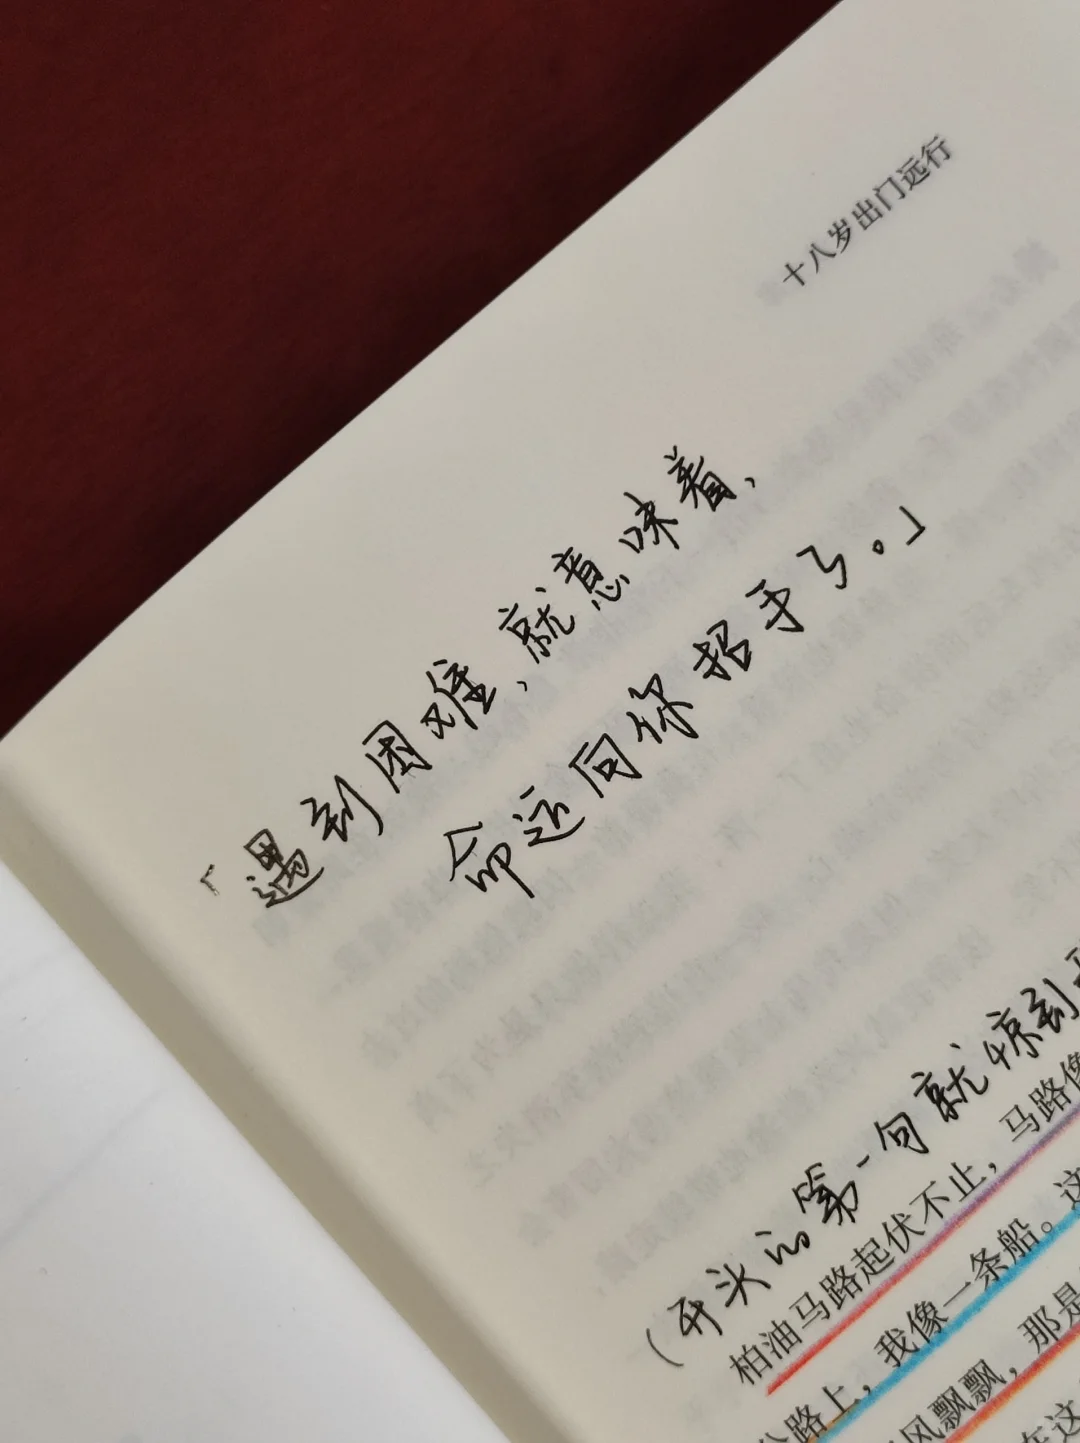 十八岁出门远行
「遇到困难，就意味着，
命运向你招手了。」
（开头的第一句就惊到
柏油马路起伏不止，马路像
公路上，我像一条船。这
风飘飘，那是
在这